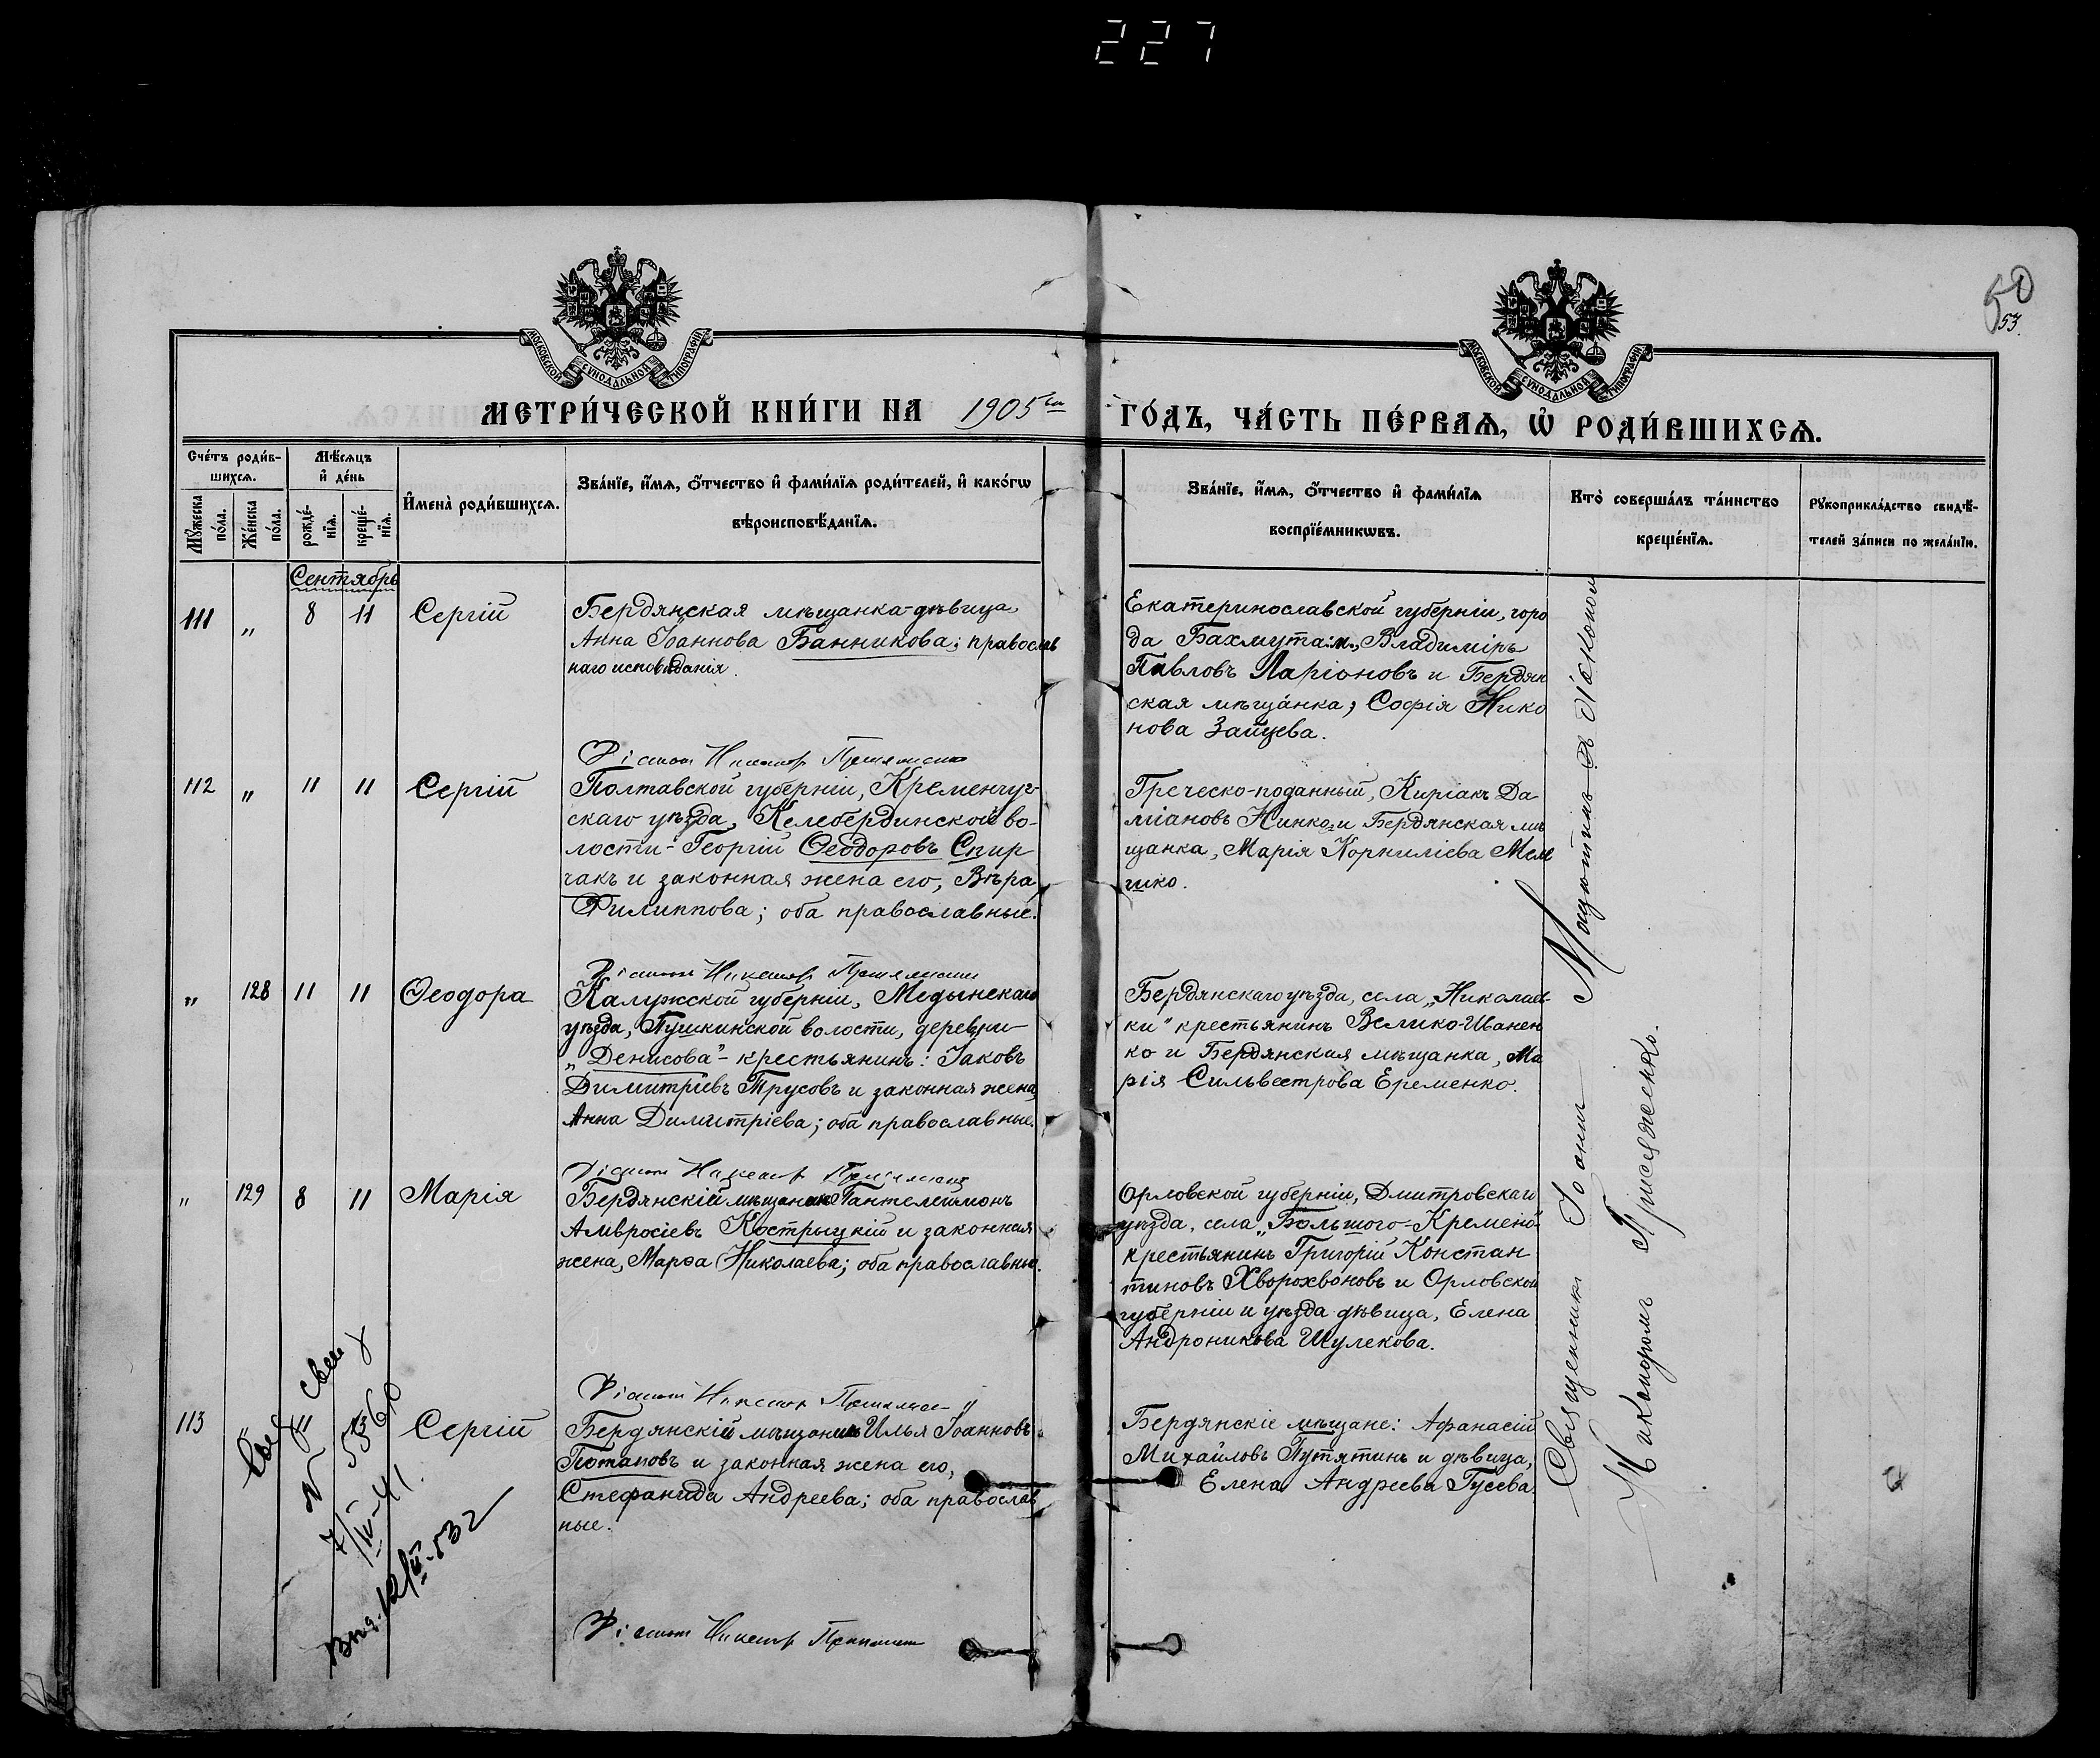 227
50
53.
МОСКОВСКОЙ СУНОДАЛЬНОЙ ТИПОГРАФІИ.
МОСКОВСКОЙ СУНОДАЛЬНОЙ ТИПОГРАФІИ.
МЕТРИ́ЧЕСКОЙ КНИ́ГИ НА 1905 ГО́ДЪ, ЧА́СТЬ ПЕ́РВАѦ, Ѡ҆ РОДИ́ВШИХСѦ.
Сче́тъ роди́в-
шихсѧ.
Мꙋ́жеска
по́ла.
Же́нска
по́ла.
Мѣ́сѧцъ
и҆ де́нь
рожде́-
нїѧ.
креще́-
нїѧ.
И҆мена̀ роди́вшихсѧ.
Зва́нїе, и҆́мѧ, ѻ҆́тчество и҆ фами́лїѧ роди́телей, и҆ како́гѡ
вѣроисповѣ́данїѧ.
Зва́нїе, и҆́мѧ, ѻ҆́тчество и҆ фами́лїѧ
воспрїе́мникѡвъ.
Кто̀ соверша́лъ та́инство
креще́нїѧ.
Рꙋкоприкла́дство свидѣ́-
телей за́писи по жела́нїю.
Сентябрь
111 „ 8 11 Сергій
Бердянская мѣщанка-дѣвица
Анна Іоаннова Банникова; православ
наго исповѣданія.
Екатеринославской губерніи, горо
да Бахмута: м., Владиміръ
Павловъ Ларіоновъ и Бердян
ская мѣщанка, Софія Нико
нова Зайцева.
112 „ 11 11 Сергій
Полтавской губерніи, Кременчуг-
скаго уѣзда, Келебердинской во-
лости-Георгій Ѳеодоровъ Спир
чакъ и законная жена его, Вѣра
Филиппова; оба православные.
Греческо-поданный, Киріакъ Да
міановъ Нинко и Бердянская мѣ
щанка, Марія Корниліева Меле
шко.
„ 128 11 11 Ѳеодора
Калужской губерніи, Медынскаго
уѣзда, Пушкинской волости, деревни
„Денисова"- крестьянинъ: Іаковъ
Димитріевъ Трусовъ и законная жена,
Анна Димитріева; оба православные.
Бердянскаго уѣзда, села „Николаев-
ки" крестьянинъ Велико-Иванен
ко и Бердянская мѣщанка, Ма
рія Сильвестрова Еременко.
„ 129 8 11 Марія
Бердянскій мѣщанинъ Пантелеимонъ
Амвросіевъ Кострыцкій и законная
жена, Марѳа Николаева; оба православные.
Орловской губерніи, Дмитровскаго
уѣзда, села „Большого-Кременѣ
крестьянинъ Григорій Констан
тиновъ Хворохвоновъ и Орловской
губерніи и уѣзда дѣвица, Елена
Андроникова Шулекова.
113 „ Сергій
Бердянскій мѣщанинъ Илья Іоанновъ
Потаповъ и законная жена его,
Стефанида Андреева; оба православ
ные.
Бердянскіе мѣщане: Афанасій
Михайловъ Путятинъ и дѣвица,
Елена Андреева Гусева.
5360
7/IV-41.
Священникъ Іоаннъ Мацютинъ съ діакономъ
Никаноромъ Присяженко.